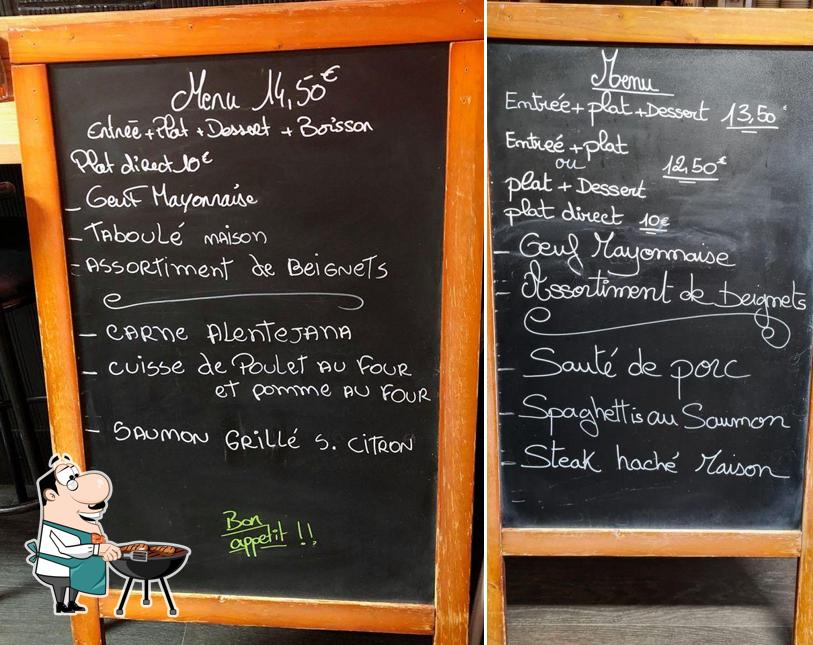 Menu 14,50€
Entrée + Plat + Dessert + Boisson
Plat direct 10€
- Oeuf Mayonnaise
- TABOULÉ MAISON
- ASSORTIMENT de BEIGNETS
- CARNE ALENTEJANA
- CUISSE de POULET AU FOUR
et pomme AU FOUR
- SAUMON GRILLÉ S. CITRON
Bon
appetit !!
Menu
Entrée + plat + Dessert 13,50€
Entrée + plat
ou 12,50€
plat + Dessert
plat direct 10€
- Oeuf Mayonnaise
- Assortiment de beignets
- Sauté de porc
- Spaghettis au Saumon
- Steak haché Maison